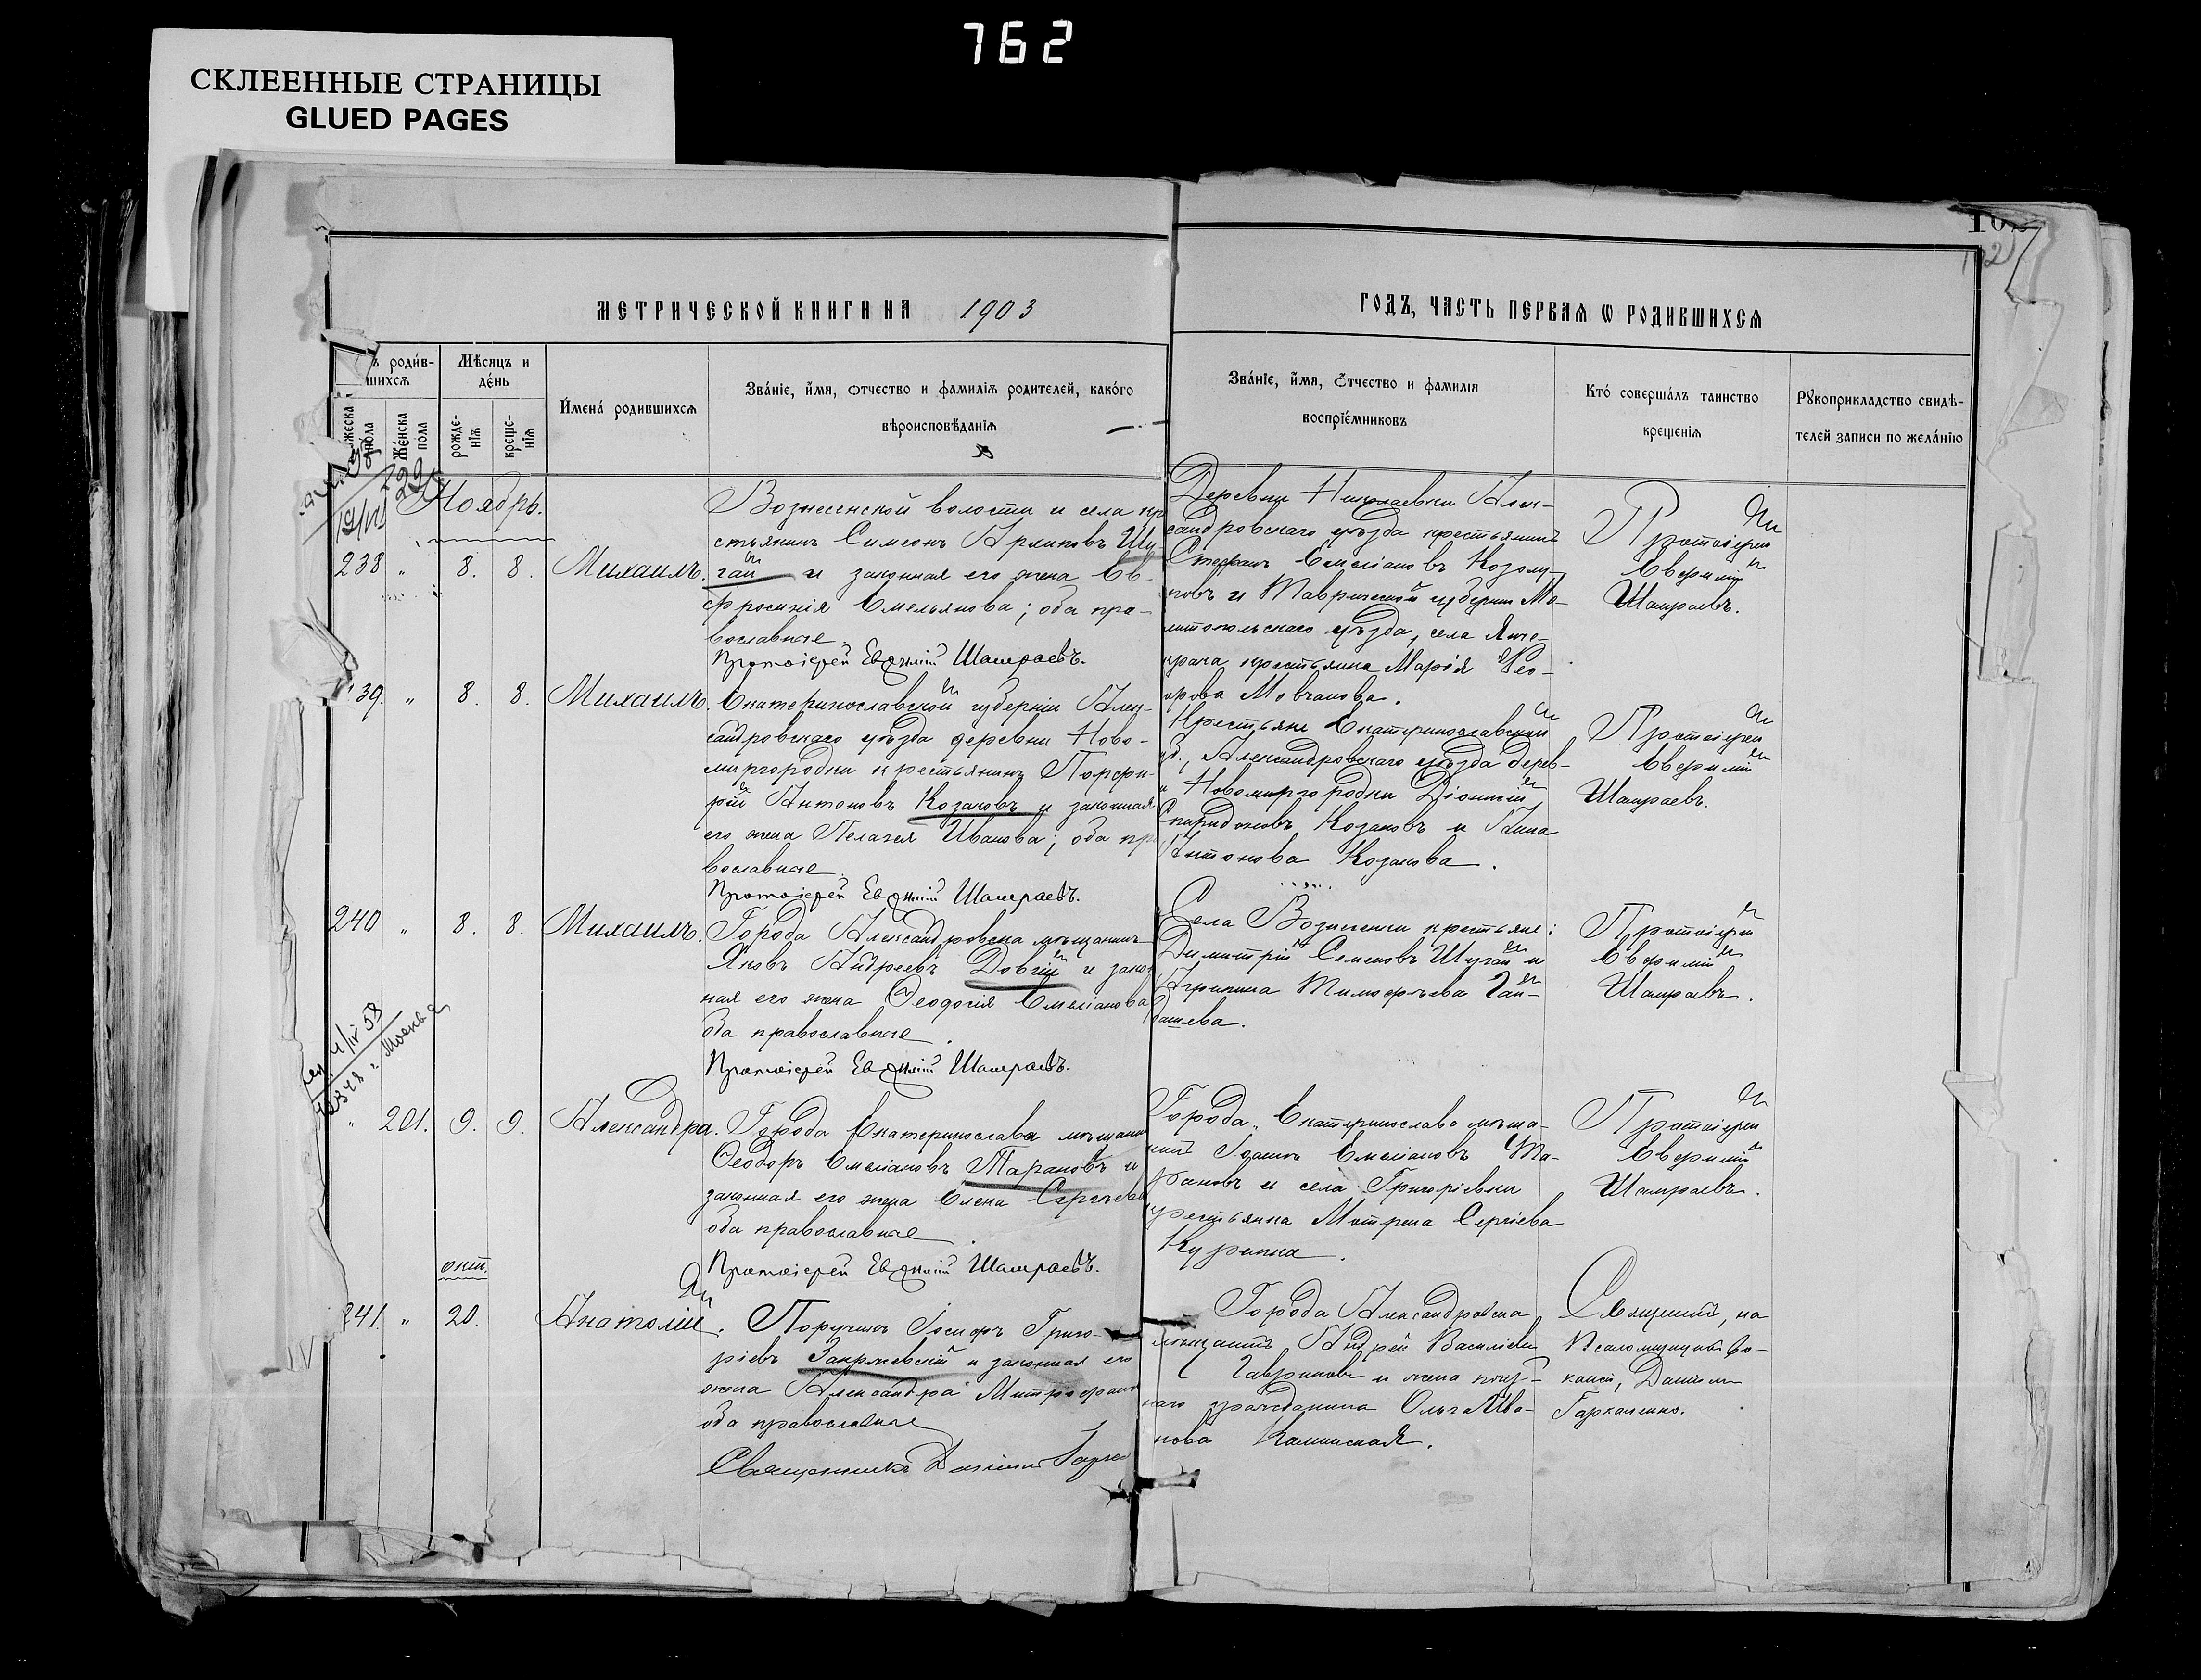 762
СКЛЕЕННЫЕ СТРАНИЦЫ
GLUED PAGES
МЕТРИЧЕСКОЙ КНИГИ НА 1903
ГОДЪ, ЧАСТЬ ПЕРВАЯ Ѡ РОДИВШИХСѦ
102
ъ родив-
шихсѧ
Мѣсяцъ и
день
Женска
пола
рожде-
нїѧ
креще-
нїѧ
Имена родившихсѧ
Званїе, имя, отчество и фамилїѧ родителей, какого
вѣроисповѣданїѧ
Званїе, имя, ѿчество и фамилїя
воспрїемниковъ
Кто совершалъ таинство
крещенїѧ
Рꙋкоприкладство свидѣ-
телей записи по желанїю
Ноябрь.
238 " 8. 8. Михаилъ.
Вознесенской волости и села кр
стьянинъ Симеонъ Шу
гай и законная его жена Ев-
фросинія Емельянова; оба пра-
вославные.
Протоіерей Евѳимій Шамраевъ.
Деревни Николаевки Алек-
сандровскаго уѣзда крестьянинъ
Стефанъ Емеліановъ Козолу-
повъ и Таврической губерніи Ме-
литопольскаго уѣзда, села Янче-
крака крестьянка Марія Ѳео-
дорова Мовчанова.
Протоіерей
Евфимій
Шамраевъ.
39. " 8. 8. Михаилъ.
Екатеринославской губерніи Алек-
сандровскаго уѣзда деревни Ново-
миргородки крестьянинъ Порфи-
рій Антоновъ Козаковъ и законная
его жена Пелагея Иванова; оба пр
вославные.
Протоіерей Евѳимій Шамраевъ.
Крестьяне Екатеринославской
губ., Александровскаго уѣзда дерев-
и Новомиргородки Діонисій
Спиридоновъ Козаковъ и Анна
Антонова Козакова.
Протоіерей
Евфимій
Шамраевъ.
240 " 8. 8. Михаилъ.
Города Александровска мѣщанинъ
Яковъ Андреевъ Довгій и закон
ная его жена Ѳеодосія Емеліанова
оба православные.
Протоіерей Евѳимій Шамраевъ.
Села Вознесенки крестьяне:
Димитрій Семеновъ Шугай и
Агрипина Тимофѣева Гай-
дашева.
Протоіерей
Евфимій
Шамраевъ.
4/IV 58
г. Москва
" 201. 9. 9. Александра.
Города Екатеринослава мѣщанин
Ѳеодоръ Емеліановъ Тарановъ и
законная его жена Елена Сергѣев
оба православные.
Протоіерей Евѳимій Шамраевъ.
Города Екатеринослава мѣща-
нинъ Іоаннъ Емеліановъ Та-
рановъ и села Григоріевки
крестьянка Мотрена Сергіева
Протоіерей
Евфимій
Шамраевъ.
окт.
241. " 20. Анатолій.
Поручикъ Іосифъ Григо-
ріевъ Закржевскій и законная его
жена Александра Митрофанов
оба православные
Священникъ Даніилъ
Города Александровска
мѣщанинъ Андрей Василіевъ
Гавриковъ и жена почет-
наго гражданина Ольга Ива-
нова Каминская.
Священникъ, на
Псаломщицкой ва-
кансіи, Даніилъ